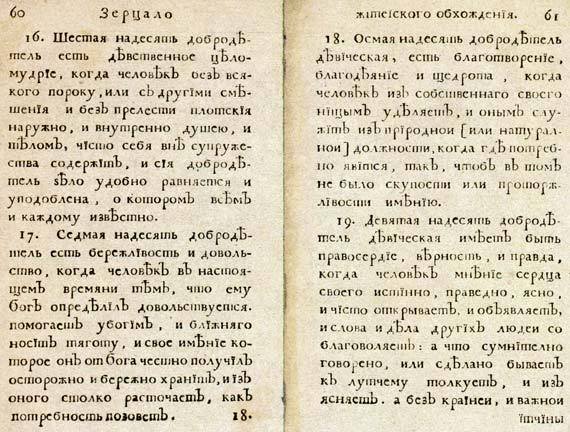 60 Зерцало
16. Шестая надесять добродѣ-
тель есть дѣвственное цѣло-
мудрїе, когда человѣкъ безъ вся-
кого пороку, или съ другїми смѣ-
шенїя и безъ прелести плотскїя
наружно, и внутренно душею, и
тѣломъ, чїсто себя внѣ супруже-
ства содержїтъ, и сїя добродѣ-
тель ѕѣло удобно равняется и
уподоблена, о которомъ всѣмъ
и каждому извѣстно.
17. Седмая надесять добродѣ-
тель есть бережлївость и доволь-
ство, когда человѣкъ въ настоя-
щемъ времяни тѣмъ, что ему
богъ опредѣлїлъ довольствуется.
помогаетъ убогїмъ, и блїжняго
носїтъ тяготу, и свое имѣнїе ко-
торое онъ отъ бога честно получїлъ
осторожно и бережно хранїтъ, и їзъ
оного столко расточаетъ, какъ
потребность позоветъ. 18.
жїтеїского обхожденїя. 61
18. Осмая надесять добродѣтель
дѣвїческая, есть благотворенїе,
благодѣянїе и щедрота, когда
человѣкъ изъ собственнаго своего
нїщымъ удѣляетъ, и онымъ слу-
жїтъ изъ прїроднои [или натурал-
нои] должности, когда гдѣ потреб-
но явїтся, такъ, чтобъ въ томъ
не было скупости или проторж-
лївости имѣнїю.
19. Девятая надесять добродѣ-
тель дѣвїческая имѣетъ быть
правосердїе, вѣрность, и правда,
когда человѣкъ мнѣнїе сердца
своего истїнно, праведно, ясно,
и чїсто открываетъ, и объявляетъ,
и слова и дѣла другїхъ людеи со
благоволяетъ: а что сумнїтелно
говорено, или сдѣлано бываетъ
къ лутчему толкуетъ, и изъ
ясняетъ. а безъ країнеи, и важнои
їтчїны